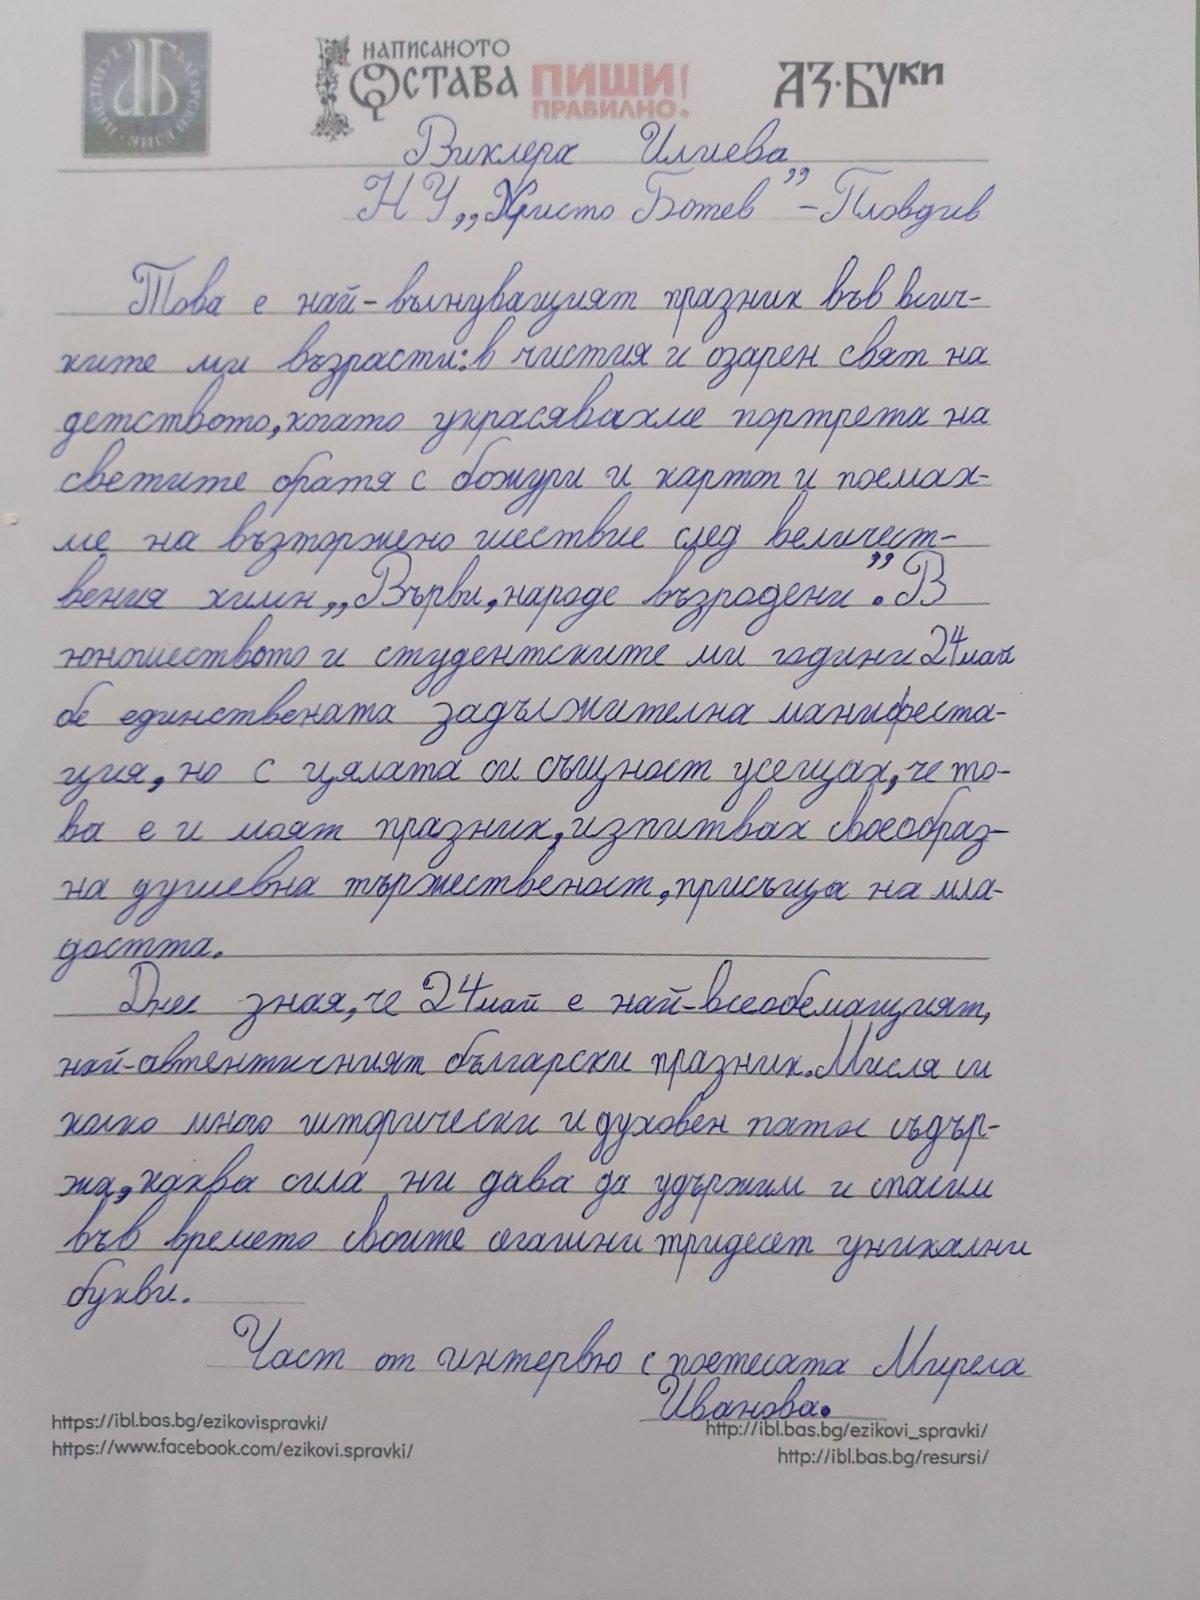 ИНСТИТУТ ЗА БЪЛГАРСКИ ЕЗИК
НАПИСАНОТО ОСТАВА
ПИШИ ПРАВИЛНО!
АЗ·БУКИ
Илиева
НУ „Христо Ботев” – Пловдив
Това е най-вълнуващият празник във всич-
ките ми възрасти: в чистия и озарен свят на
детството, когато украсявахме портрета на
светите братя с божури и картоп и поемах-
ме на възторжено шествие след величест-
вения химн „Върви, народе възродени”. В
юношеството и студентските ми години 24 май
бе единствената задължителна манифеста-
ция, но с цялата си същност усещах, че то-
ва е и моят празник, изпитвах своеобраз-
на душевна тържественост, присъща на мла-
достта.
Днес зная, че 24 май е най-всеобемащият,
най-автентичният български празник. Мисля си
колко много исторически и духовен патос съдър-
жа, каква сила ни дава да удържим и спасим
във времето своите сегашни тридесет уникални
букви.
Част от интервю с поетесата Мирела
Иванова.
https://ibl.bas.bg/ezikovispravki/
https://www.facebook.com/ezikovi.spravki/
http://ibl.bas.bg/ezikovi_spravki/
http://ibl.bas.bg/resursi/